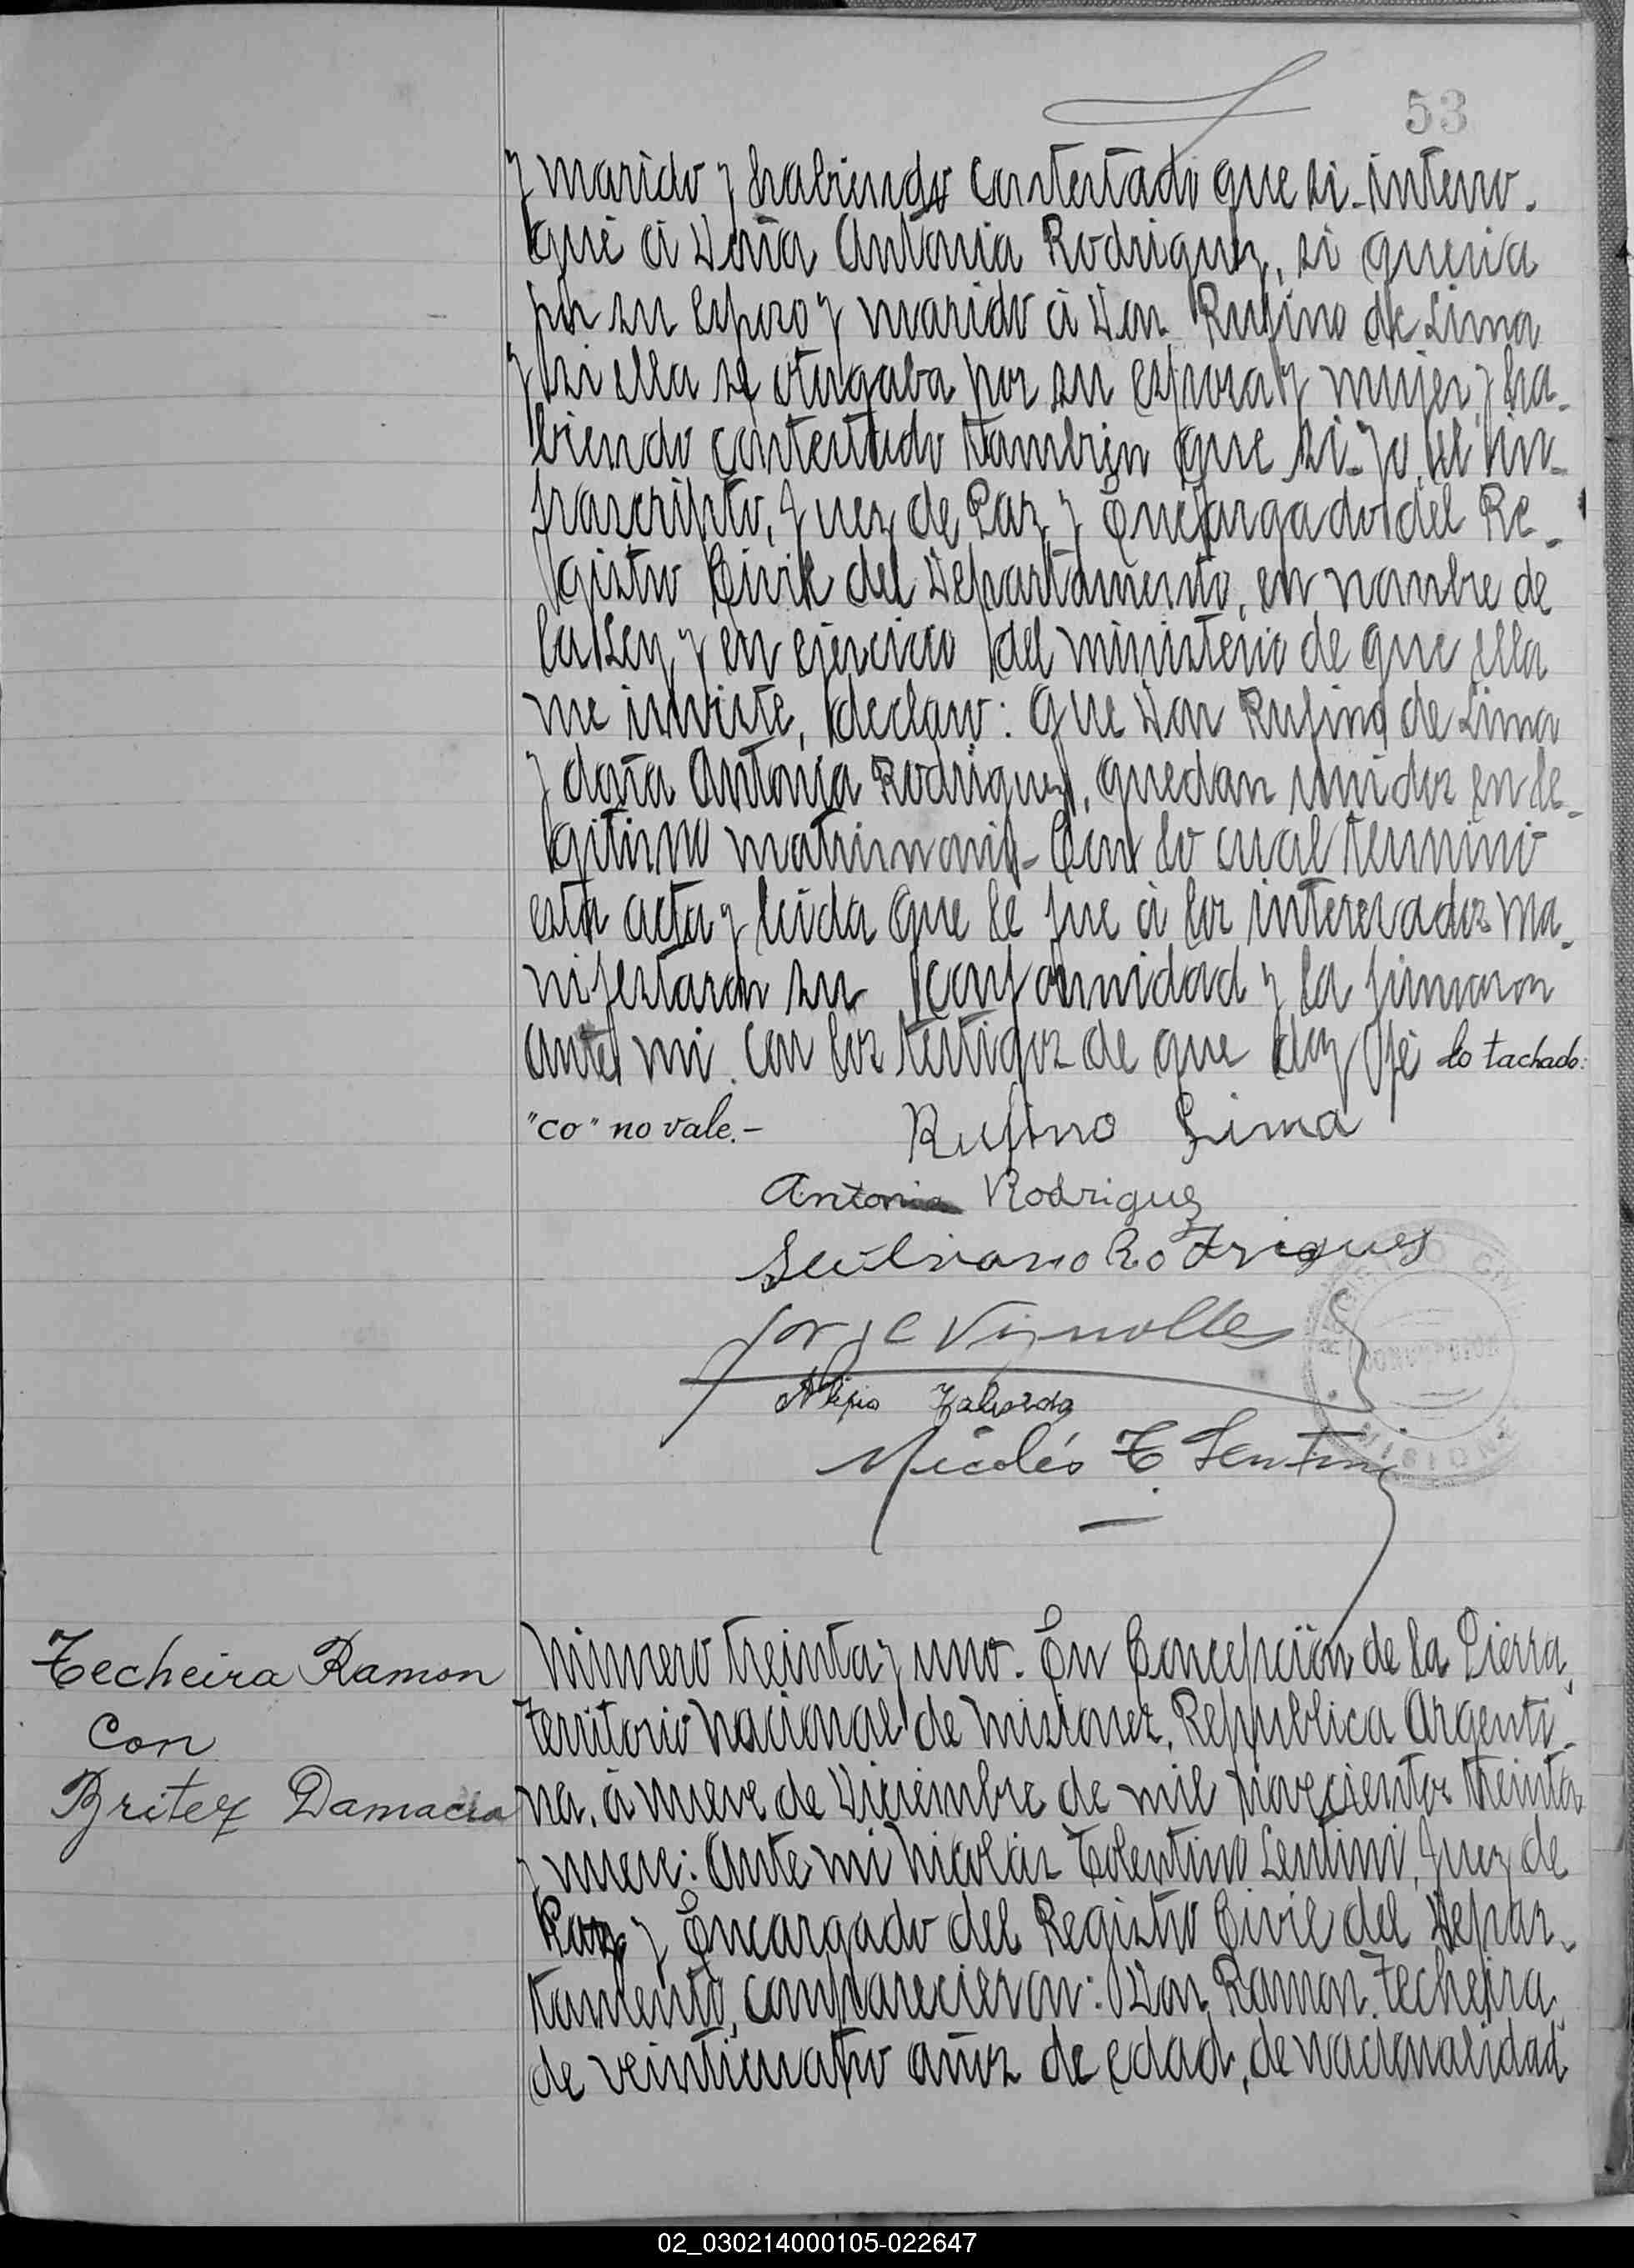 53
y marido y habiendo contestado que si - interro-
gué á Doña Antonia Rodriguez, si queria
por su esposo y marido á Don Rufino de Lima
y si ella se otorgaba por su esposa y mujer, y ha-
biendo contestado tambien que si - yo, el in-
frascripto, Juez de Paz y Encargado del Re-
gistro Civil del Departamento, en nombre de
la Ley y en ejercicio del ministerio de que ella
me inviste, declaro: Que Don Rufino de Lima
y doña Antonia Rodriguez, quedan unidos en le-
gitimo matrimonio - Con lo cual terminó
esta acta y leida que le fue á los interesados ma-
nifestaron su conformidad y la firmaron
ante mi con los testigos de que doy fé lo tachado:
"co" no vale.-
Rufino Lima
Antonia Rodriguez
Silviano Rodrigues
Jorge Vignolles
Alejo Taborda
Nicolás T. Lentini
REGISTRO CIVIL
CONCEPCION
MISIONES
Techeira Ramon
Con
Britez Damacia
Número treinta y uno. En Concepción de la Sierra,
Territorio Nacional de Misiones, República Argenti-
na, á nueve de Diciembre de mil novecientos treinta
y nueve: Ante mi Nicolás Tolentino Lentini, Juez de
Paz y Encargado del Registro Civil del Depar-
tamento, comparecieron: Don Ramon Techeira,
de veinticuatro años de edad, de nacionalidad
02_030214000105-022647